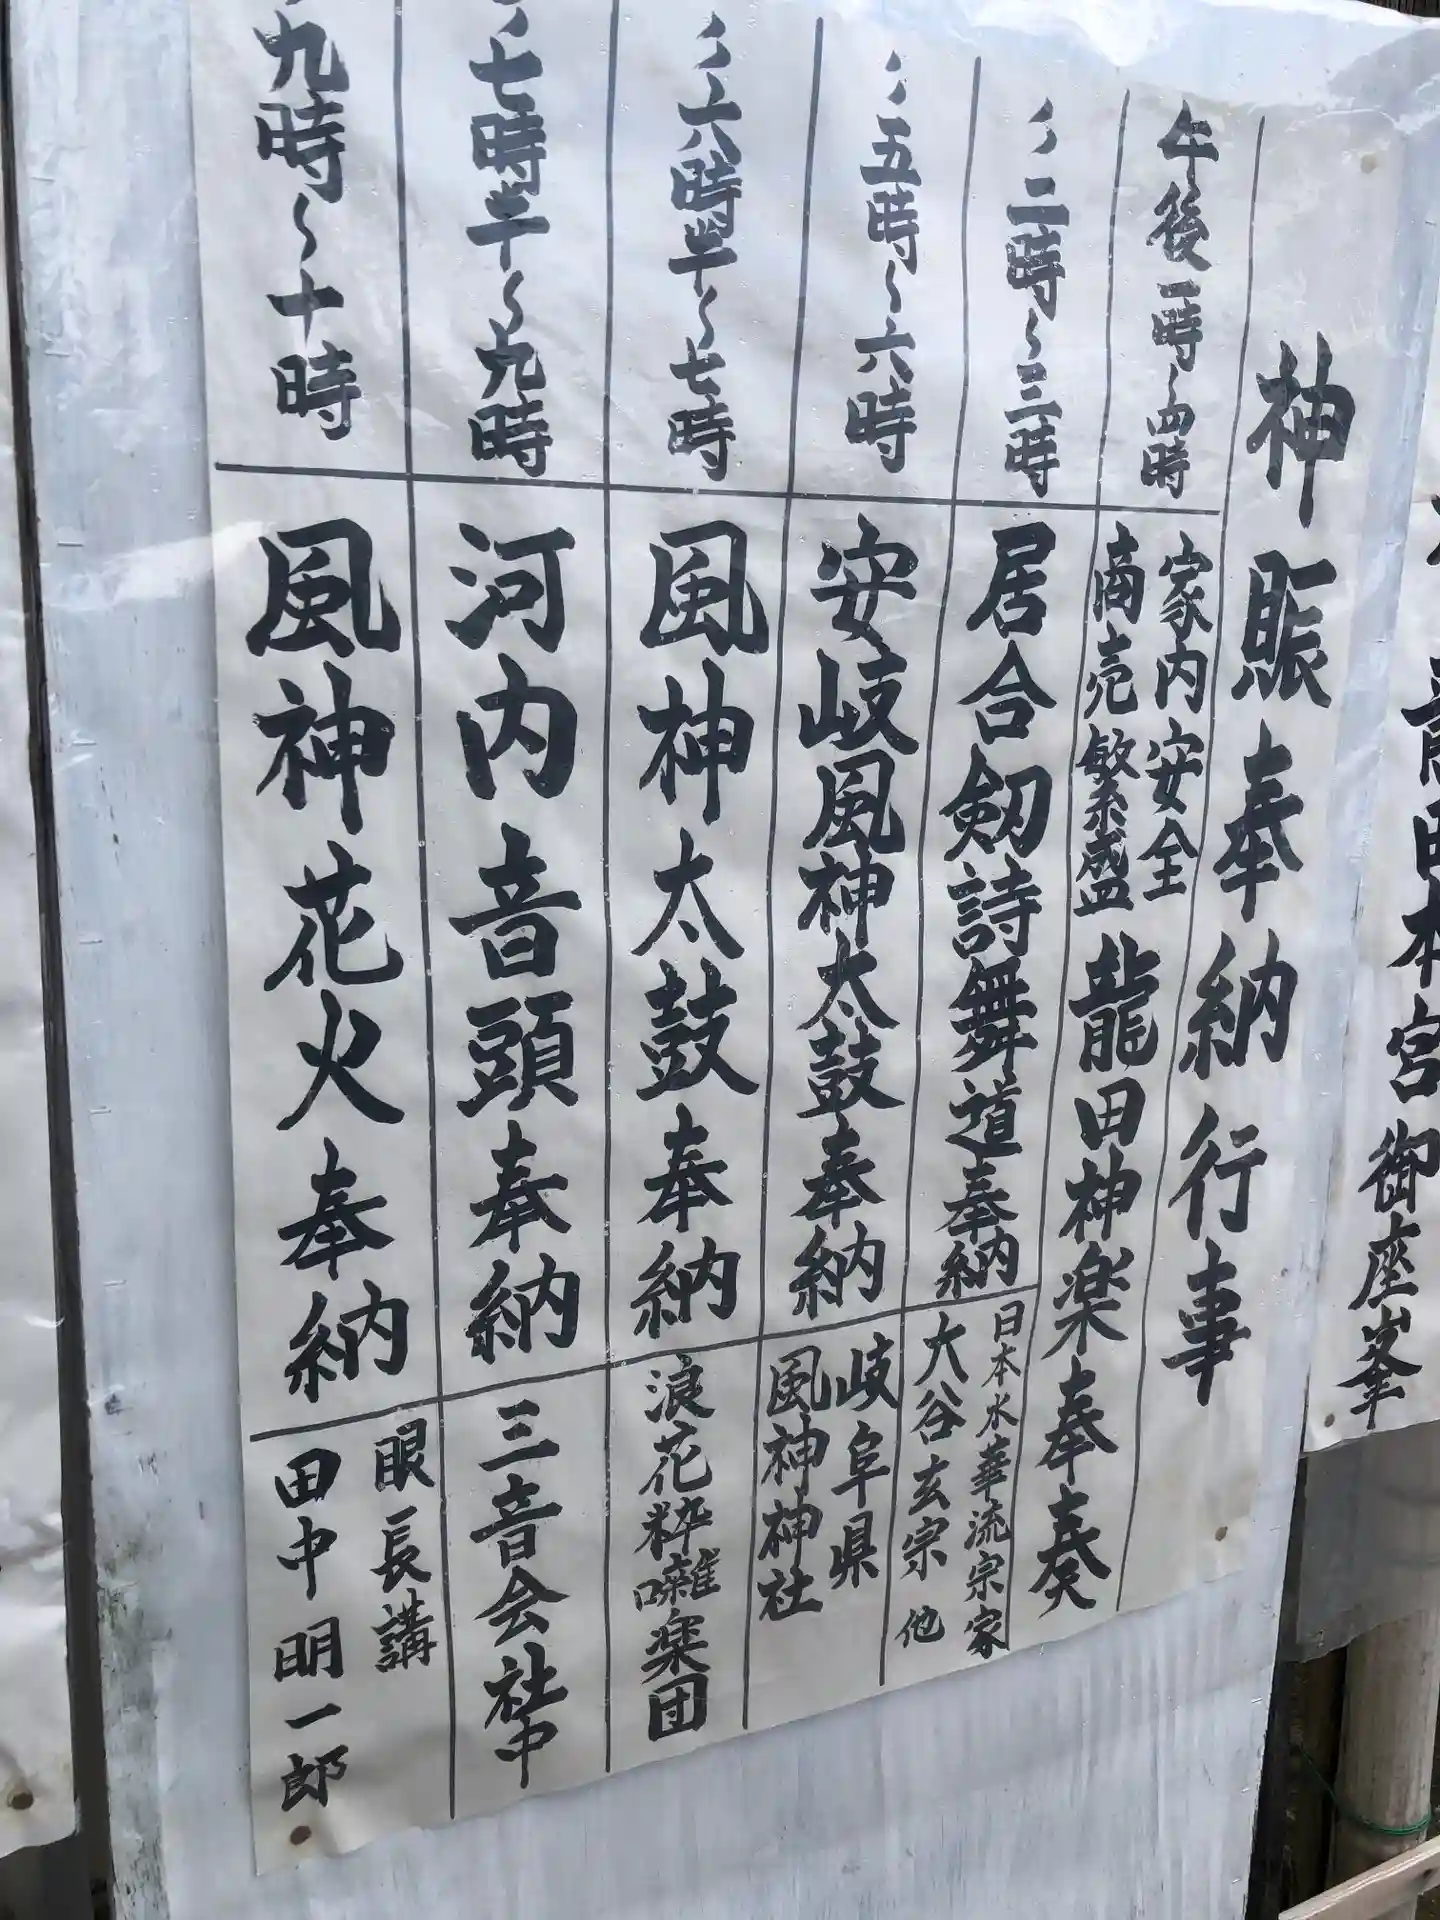 龍田本宮御座峯
神賑奉納行事
午後一時〜四時
家内安全
商売繁盛
龍田神楽奉奏
〃二時〜三時
居合剱詩舞道奉納
日本水華流宗家
大谷玄宗 他
〃五時〜六時
安岐風神太鼓奉納
岐阜県
風神神社
〃六時半〜七時
風神太鼓奉納
浪花粋囃楽団
〃七時半〜九時
河内音頭奉納
三音会社中
九時〜十時
風神花火奉納
眼長講
田中明一郎